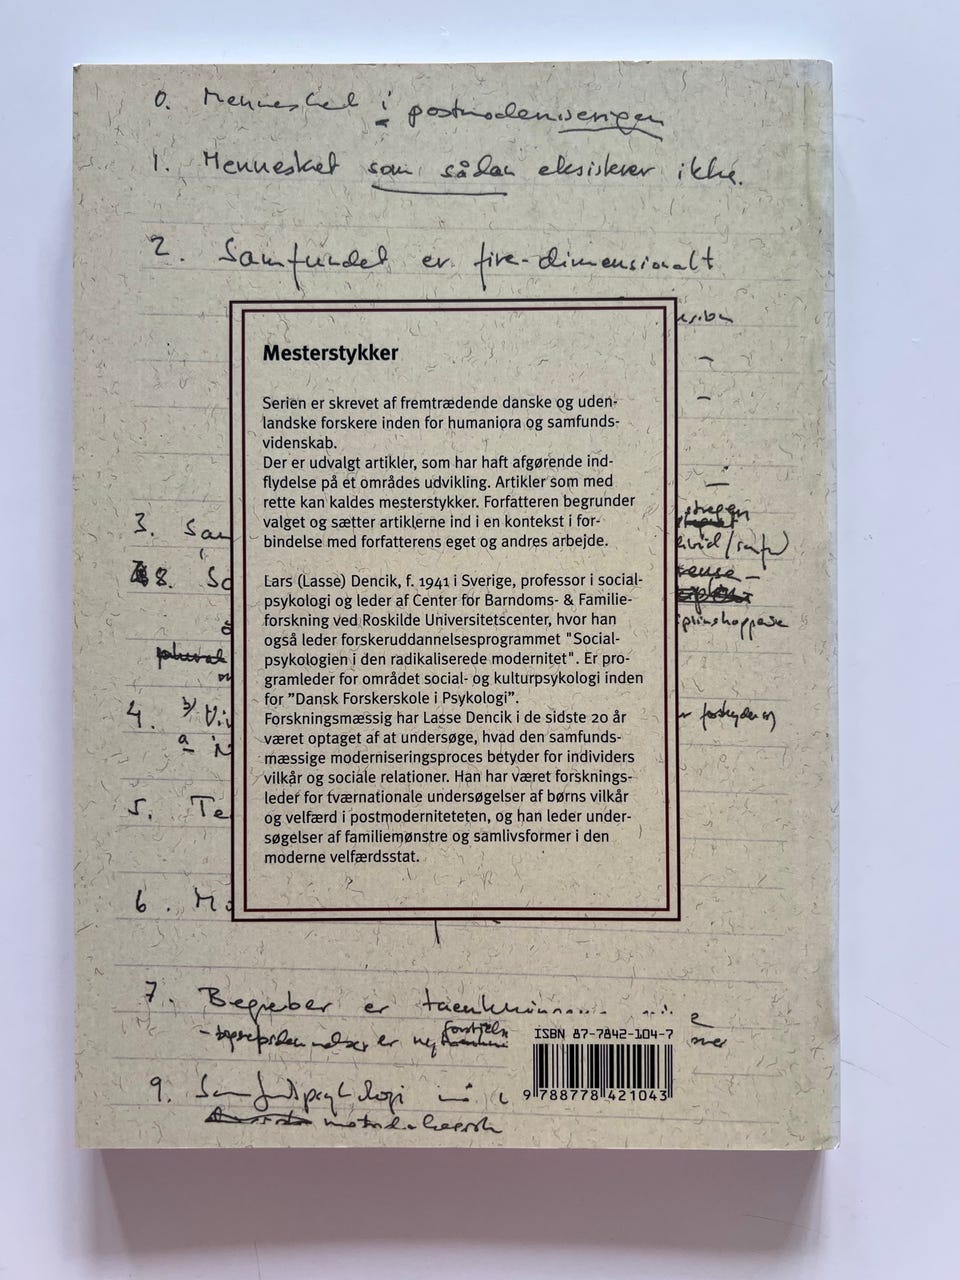 0. Mennesket i postmoderniseringen
1. Mennesket som sådan eksisterer ikke.
2. Samfundet er fire-dimensionalt
Mesterstykker
Serien er skrevet af fremtrædende danske og uden-
landske forskere inden for humaniora og samfunds-
videnskab.
Der er udvalgt artikler, som har haft afgørende ind-
flydelse på et områdes udvikling. Artikler som med
rette kan kaldes mesterstykker. Forfatteren begrunder
valget og sætter artiklerne ind i en kontekst i for-
bindelse med forfatterens eget og andres arbejde.
Lars (Lasse) Dencik, f. 1941 i Sverige, professor i social-
psykologi og leder af Center for Barndoms- & Familie-
forskning ved Roskilde Universitetscenter, hvor han
også leder forskeruddannelsesprogrammet "Social-
psykologien i den radikaliserede modernitet". Er pro-
gramleder for området social- og kulturpsykologi inden
for ”Dansk Forskerskole i Psykologi”.
Forskningsmæssig har Lasse Dencik i de sidste 20 år
været optaget af at undersøge, hvad den samfunds-
mæssige moderniseringsproces betyder for individers
vilkår og sociale relationer. Han har været forsknings-
leder for tværnationale undersøgelser af børns vilkår
og velfærd i postmoderniteteten, og han leder under-
søgelser af familiemønstre og samlivsformer i den
moderne velfærdsstat.
3. Sam
8. So
4.
5. Te
6. Mo
7. Begreber er
9. Samfundspsykologi
ISBN 87-7842-104-7
9 788778 421043